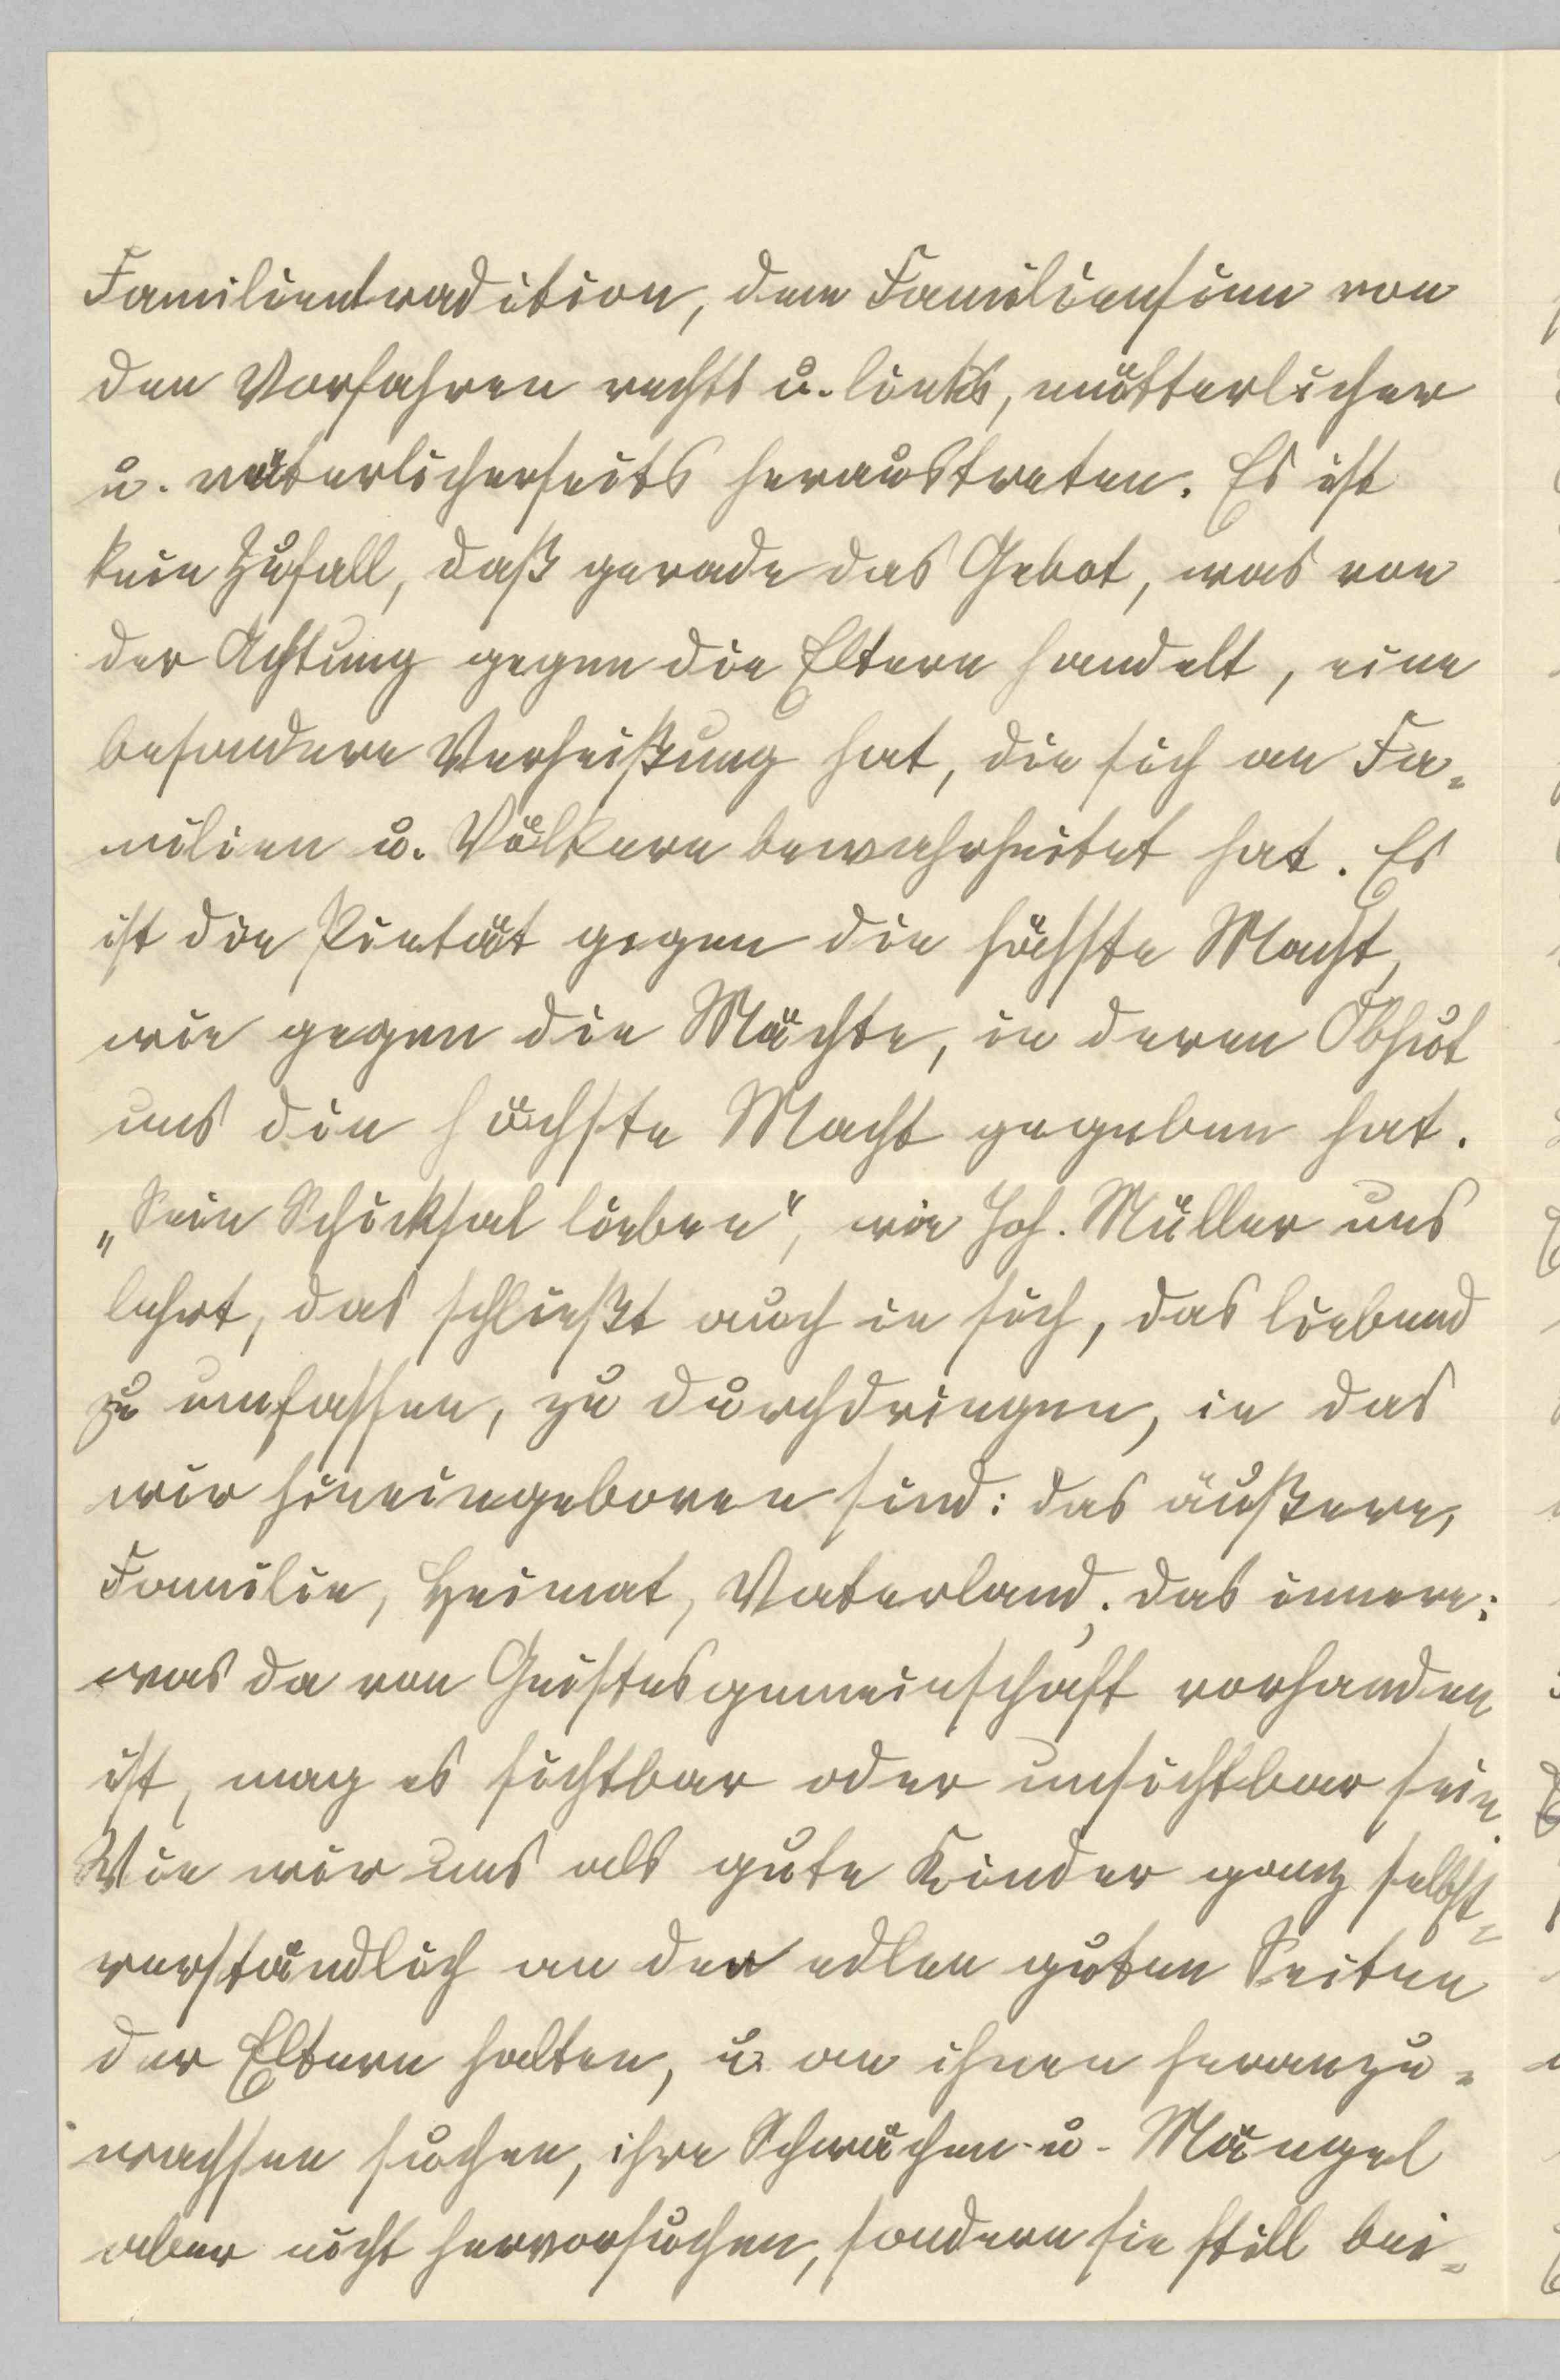 Familientradition, dem Familiensinn von
den Vorfahren rechts u. links, mütterlicher
u. väterlicherseits heraustreten. Es ist
kein Zufall, daß gerade das Gebot, was von
der Achtung gegen die Eltern handelt, eine
besondere Verheißung hat, die sich an Fa-
milien u. Völkern bewahrheitet hat. Es
ist die Pietät gegen die höchste Macht,
wie gegen die Mächte, in deren Obhut
uns die höchste Macht gegeben hat.
„Sein Schicksal lieben“, wie Joh. Müller uns
lehrt, das schließt auch in sich, das liebend
zu umfassen, zu durchdringen, in das
wir hineingeboren sind: das äußere,
Familie, Heimat, Vaterland; das innere:
was da von Geistesgemeinschaft vorhanden
ist, mag es sichtbar oder unsichtbar sein.
Wie wir uns als gute Kinder ganz selbst-
verständlich an den edlen guten Seiten
der Eltern halten, u. an ihnen heranzu-
wachsen suchen, ihre Schwächen u. Mängel
aber nicht hervorsuchen, sondern sie still bei-